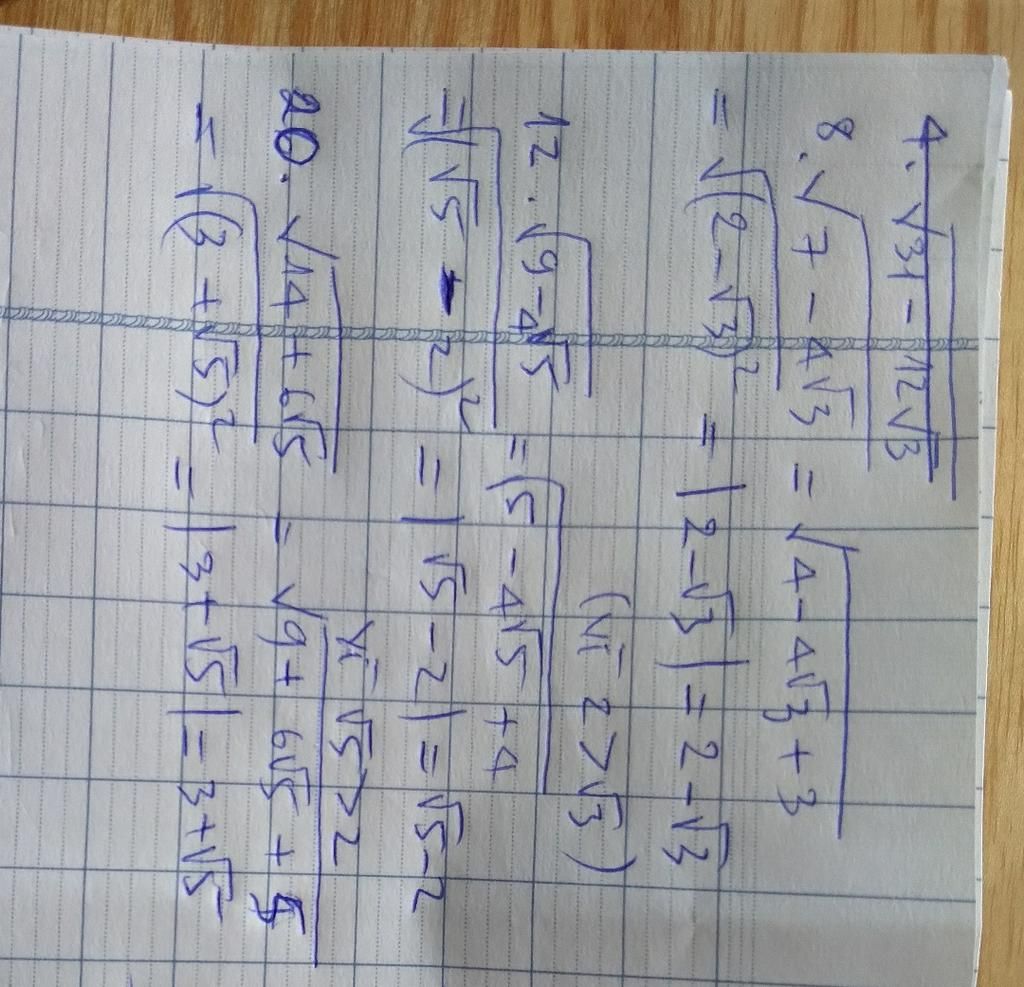 4. √31 - 12√3
8. √7 - 4√3 = √4 - 4√3 + 3
= √(2 - √3)² = |2 - √3| = 2 - √3
(vì 2 > √3)
12. √9 - 4√5 = √5 - 4√5 + 4
= √(√5 - 2)² = |√5 - 2| = √5 - 2
vì √5 > 2
20. √14 + 6√5 = √9 + 6√5 + 5
= √(3 + √5)² = |3 + √5| = 3 + √5